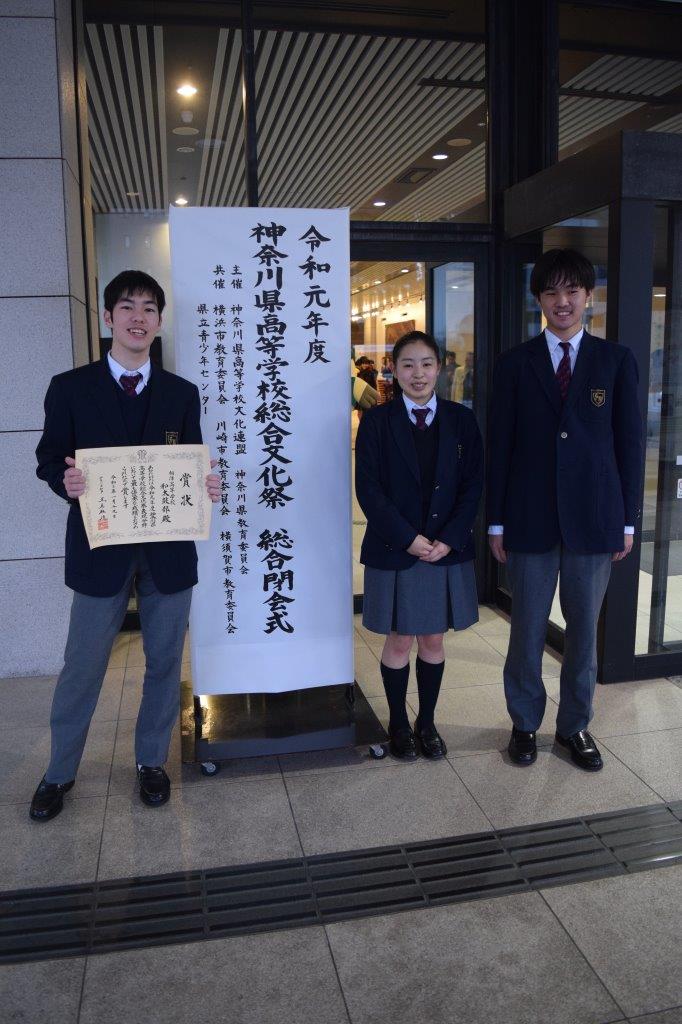 令和元年度
神奈川県高等学校総合文化祭 総合閉会式
主催 神奈川県高等学校文化連盟 神奈川県教育委員会
共催 横浜市教育委員会 川崎市教育委員会 横須賀市教育委員会
県立青少年センター
賞状
相洋高等学校
和太鼓部殿